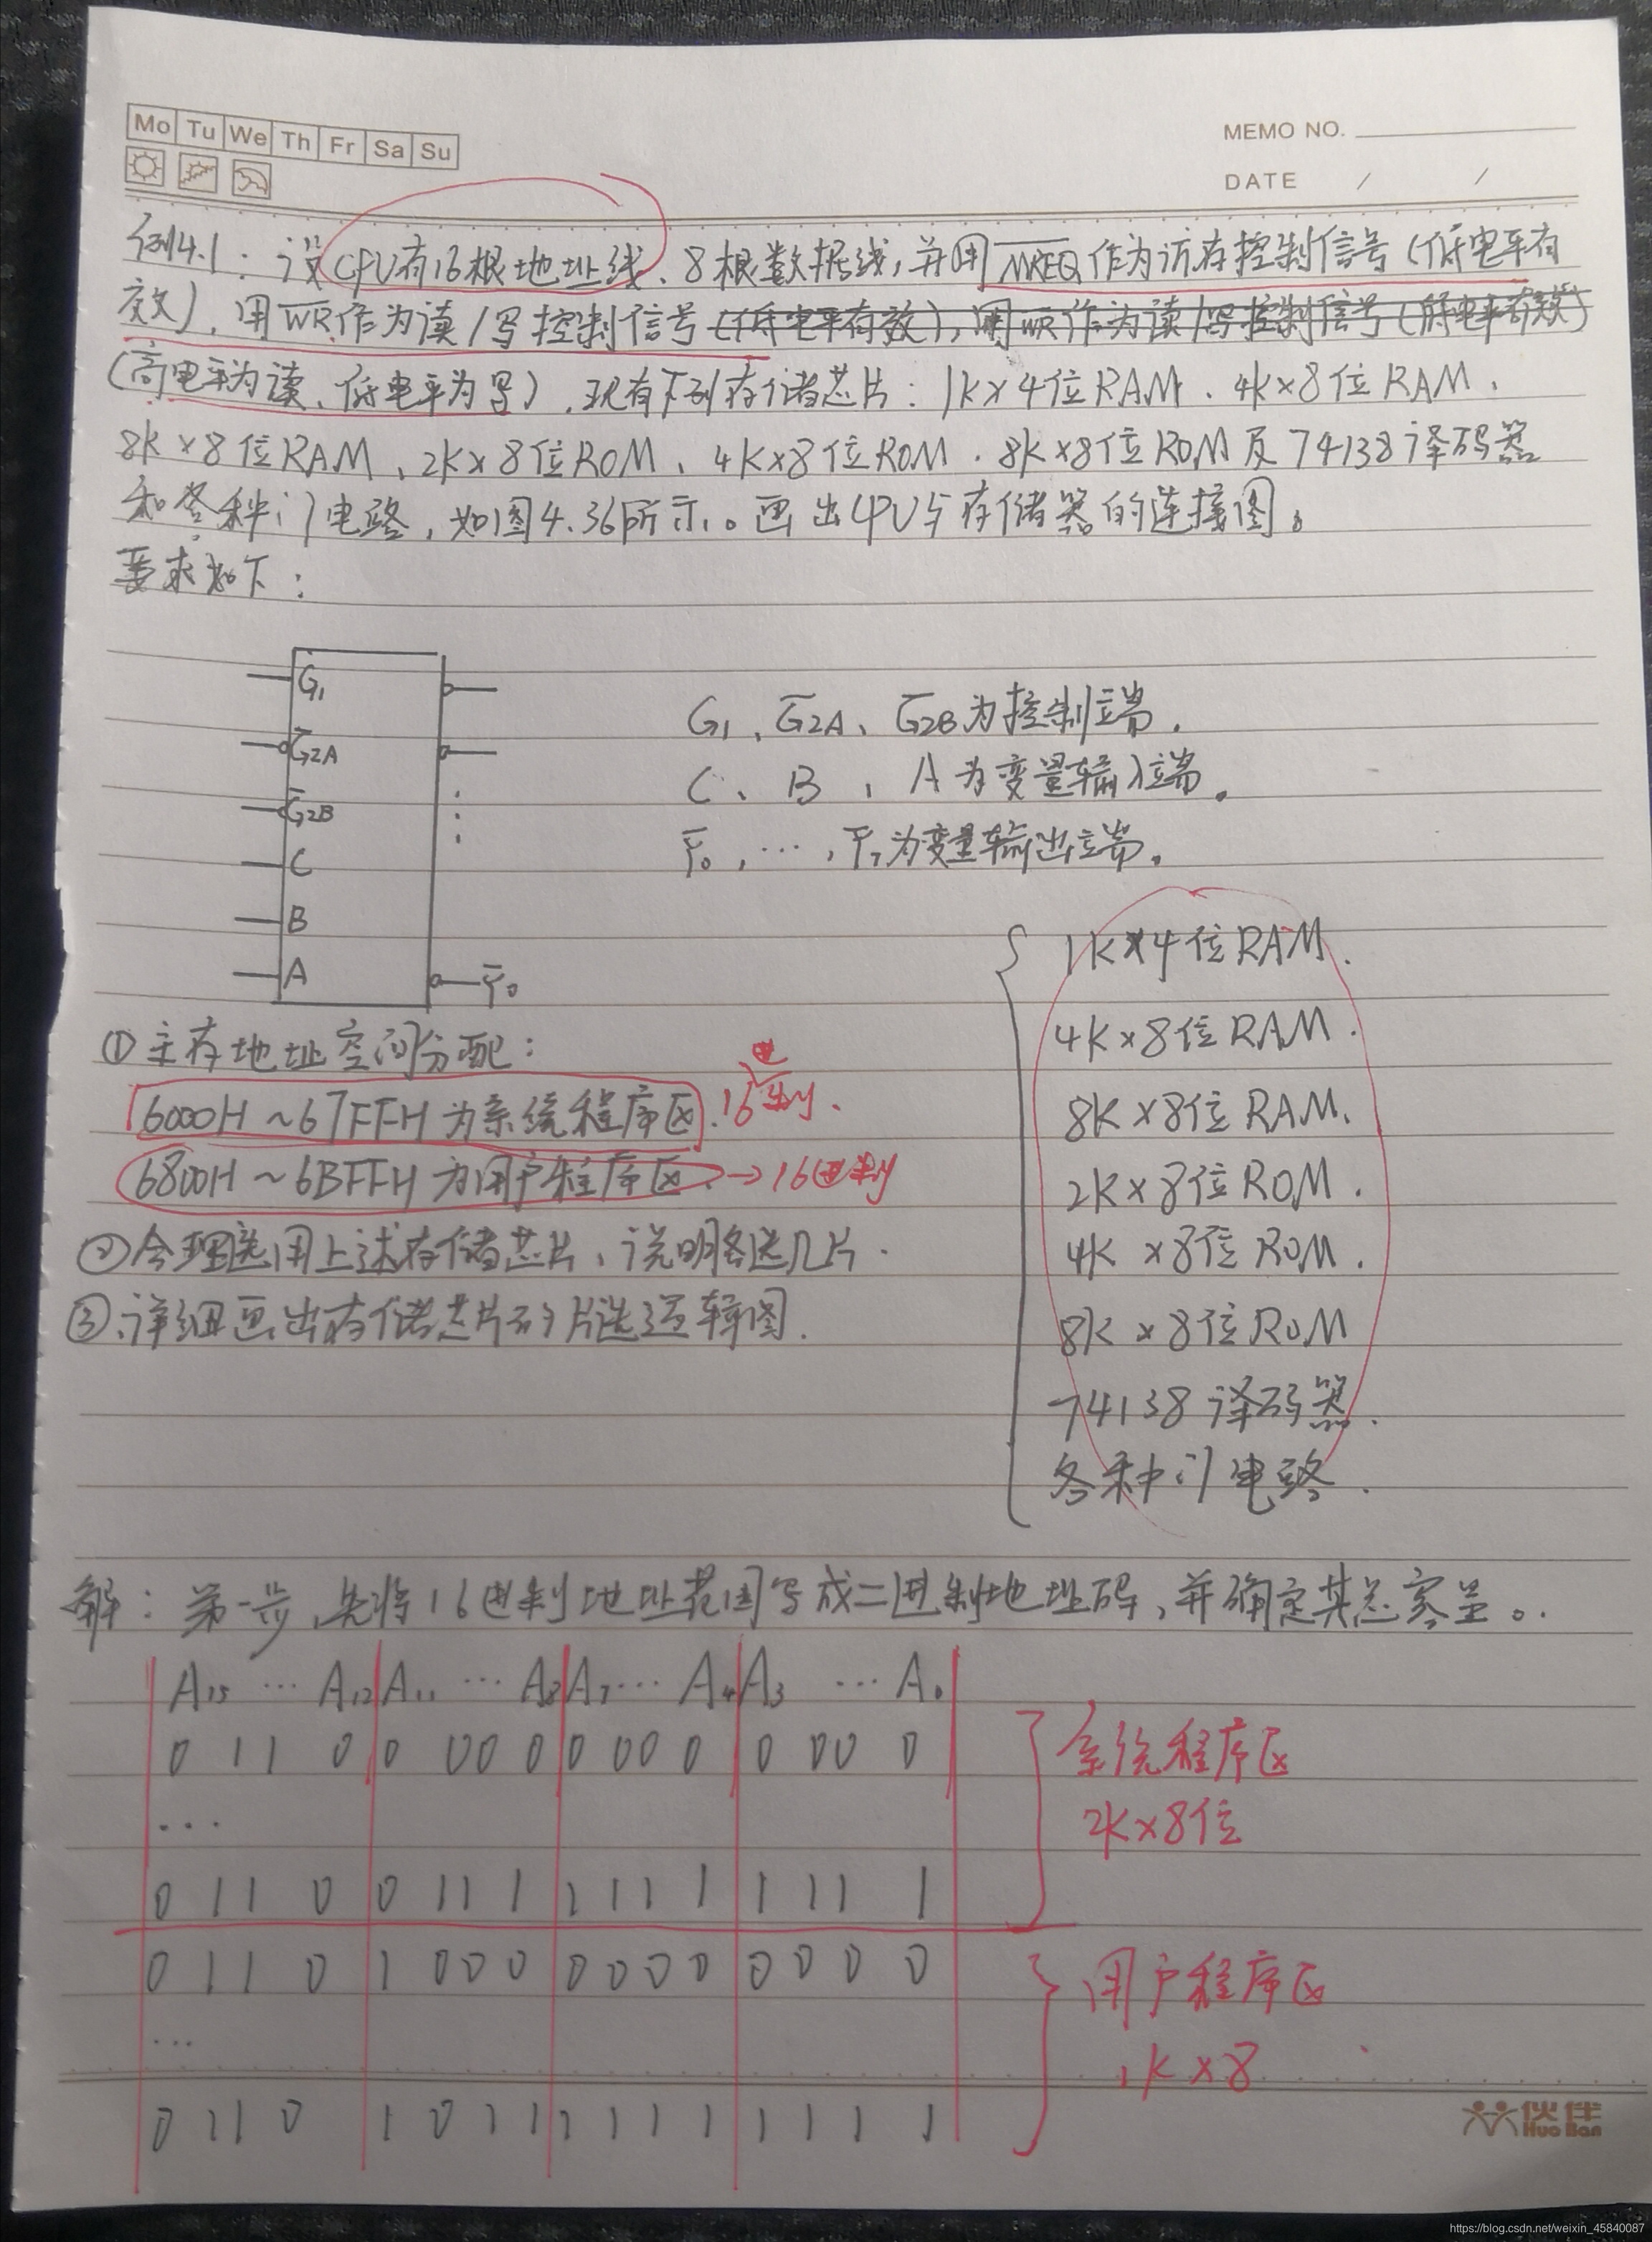 Mo Tu We Th Fr Sa Su
MEMO NO.
DATE / /
例4.1：设CPU有16根地址线、8根数据线，并用M̅R̅E̅Q̅作为访存控制信号（低电平有
效），用W̅R̅作为读/写控制信号（低电平有效），用WR作为读/写控制信号（低电平有效）
（高电平为读、低电平为写）。现有下列存储芯片：1K×4位RAM、4K×8位RAM、
8K×8位RAM、2K×8位ROM、4K×8位ROM、8K×8位ROM及74138译码器
和各种门电路，如图4.36所示。画出CPU与存储器的连接图。
要求如下：
G₁
G̅2A
G̅2B
C
B
A
Y̅₀
G₁、G̅2A、G̅2B为控制端。
C、B、A为变量输入端。
Y̅₀，…，Y̅₇为变量输出端。
1K×4位RAM.
4K×8位RAM.
8K×8位RAM.
2K×8位ROM.
4K×8位ROM.
8K×8位ROM
74138译码器.
各种门电路.
①主存地址空间分配：
6000H~67FFH为系统程序区. 16进制.
6800H~6BFFH为用户程序区. →16进制
②合理选用上述存储芯片、说明各选几片.
③、详细画出存储芯片的片选逻辑图.
解：第一步，先将16进制地址范围写成二进制地址码，并确定其总容量。
A₁₅ … A₁₂ A₁₁ … A₈ A₇ … A₄ A₃ … A₀
0 1 1 0 0 0 0 0 0 0 0 0 0 0 0 0
…
0 1 1 0 0 1 1 1 1 1 1 1 1 1 1 1
系统程序区
2K×8位
0 1 1 0 1 0 0 0 0 0 0 0 0 0 0 0
…
0 1 1 0 1 0 1 1 1 1 1 1 1 1 1 1
用户程序区
1K×8
伙伴
Huo Ban
https://blog.csdn.net/weixin_45840087